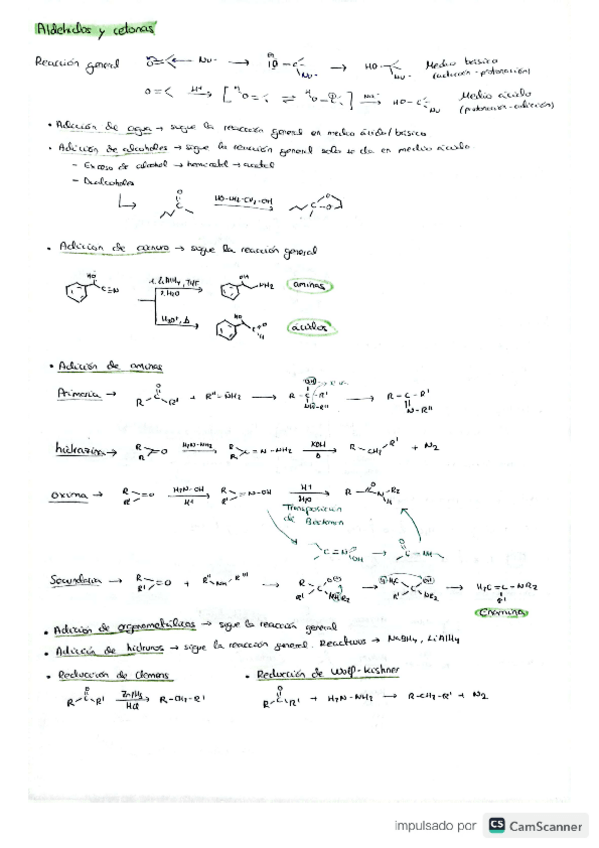 Aldehidos y cetonas
Reacción general O=C Nu⁻ → |O̅-C-Nu → HO-C-Nu Medio básico
(adición-protonación)
O=C H⁺ → [ ⁺HO=C ⇌ HO-C⁺ ] Nu⁻ → HO-C-Nu Medio ácido
(protonación-adición)
• Adición de agua → sigue la reacción general en medio ácido/básico
• Adición de alcoholes → sigue la reacción general solo se da en medio ácido
- Exceso de alcohol → hemiacetal → acetal
- Dialcoholes
HO-CH2-CH2-OH
• Adición de cianuro → sigue la reacción general
HO C≡N 1. LiAlH4, THF 2. H2O OH NH2 aminas
H3O⁺, Δ HO ácidos
• Adición de aminas
Primaria → R-C(=O)-R' + R''-NH2 → R-C(OH)(NH-R'')-R' → R-C-R' N-R''
hidrazina → R R =O H2N-NH2 → R R =N-NH2 KOH Δ → R-CH2-R' + N2
oxima → R R' =O H2N-OH H⁺ → R R' =N-OH H⁺ H2O → R N R2 H
Transposición
de Beckman
C=N OH → O C NH
Secundaria → R R' =O + R'' NH R''' → R R' C O⁻ NHR2 → C OH NR2 → H2C=C-NR2 R'
Enamina
• Adición de organometálicos → sigue la reacción general
• Adición de hidruros → sigue la reacción general. Reactivos → NaBH4, LiAlH4
• Reducción de Clemens • Reducción de Wolf-Kishner
R-C(=O)-R' Zn/Hg HCl → R-CH2-R' R-C(=O)-R' + H2N-NH2 → R-CH2-R' + N2
impulsado por CS CamScanner